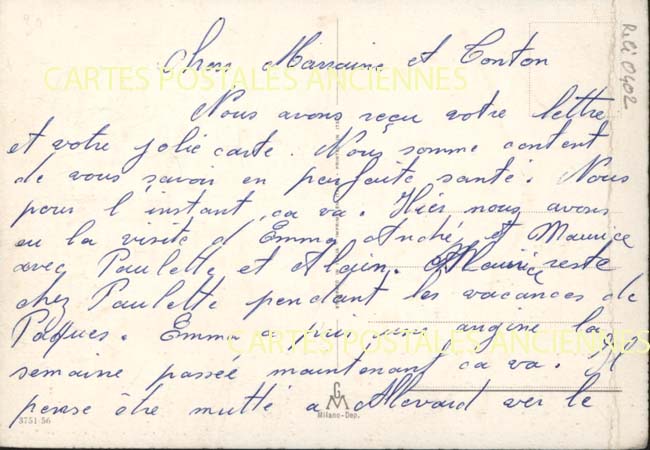 Chers Marraine et Tonton
CARTES POSTALES ANCIENNES
Réli 0402
Nous avons reçu votre lettre
et votre jolie carte. Nous somme content
de vous savoir en parfaite santé. Nous
pour l'instant ça va. Hier nous avons
eu la visite d'Emma André, et Maurice
avec Paulette et Alain. Maurice reste
chez Paulette pendant les vacances de
Pâques. Emma a pris une angine la
CARTES POSTALES ANCIENNES
semaine passée maintenant ca va. Il
pense être mutté a Allevard ver le
GM
3751-56
Milano-Dep.